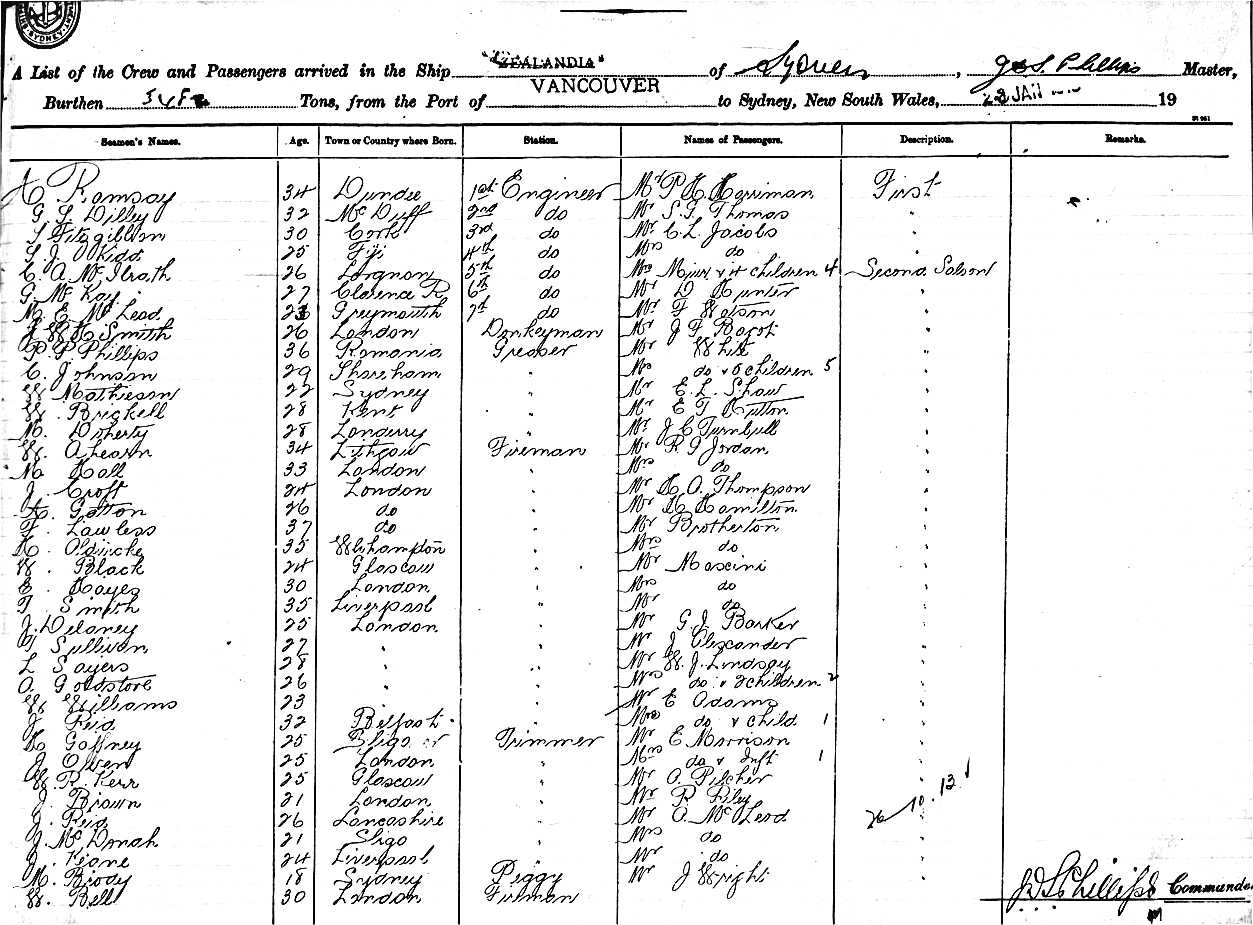 SYDNEY
"ZEALANDIA"
A List of the Crew and Passengers arrived in the Ship VANCOUVER of Sydney, J D S Phillips Master,
Burthen Tons, from the Port of to Sydney, New South Wales, 28 JAN 19
Seamen's Names. Age. Town or Country where Born. Station. Names of Passengers. Description. Remarks.
Ramsay 34 Dundee 1st Engineer Mr P H Merriman First
G L Dilley 32 McDuff 2nd do Mr S. G Thomas "
Fitzgibbon 30 Cork 3rd do Mr C L Jacobs "
J Kidd 25 Fiji 4th do Mrs do "
C. A. McIlrath 26 5th do Mrs & 4 children 4 Second Saloon
G. McKay 27 Clarence R 6th do Mr D Hunter "
M. E. McLeod 23 Greymouth 7th do Mr F Watson "
W H Smith 26 London Donkeyman Mr J F "
P. P. Phillips 36 Romania Greaser Mr White "
C. Johnson 29 Shoreham " Mrs do & 5 children 5 "
W Mathieson 22 Sydney " Mr E L Shaw "
W. Brickell 28 Kent " Mr E T Hutton "
M. Doherty 28 Londerry " Mr J C Turnbull "
W. Ahearn 34 Lithgow Fireman Mr R G Jordan "
M Hall 33 London " Mrs do "
J Croft 24 London " Mr H A. Thompson "
A. Gatton 26 do " Mr H Hamilton "
F. Lawless 37 do " Mr Brotherton "
H. 35 W'hampton " Mrs do "
W. Black 24 Glascow " Mr Mascini "
E. Hayes 30 London " Mrs do "
T Smith 35 Liverpool " Mr do "
J. Delaney 25 London " Mr G. J. Barker "
Sullivan 27 " " Mr J Alexander "
L Sayers 28 " " Mr W. J. Lindsay "
A. Goldstone 26 " " Mrs do & 2 children 2 "
W Williams 23 " " Mr E Adams "
J Reid 32 Belfast " Mrs do & child 1 "
H Gaffney 25 Sligo Trimmer Mr E Morrison "
J Owen 25 London " Mrs do & Inft 1 "
W. R. Kerr 25 Glascow " Mr A. Pilcher "
J. Brown 21 London " Mr R Riley "
J. Reid 26 Lancashire " Mr A. McLeod 26 . 10 . 13
J. McDonah 21 Sligo " Mrs do "
J. Keane 24 Liverpool " Mr do "
M. Brody 18 Sydney Peggy Mr J Wright "
W. Bell 30 London Fireman J D S Phillips Commander